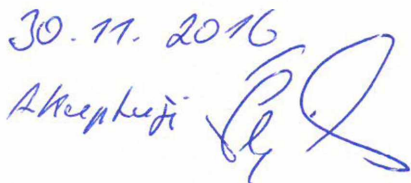 30.11.2016
Akceptuji